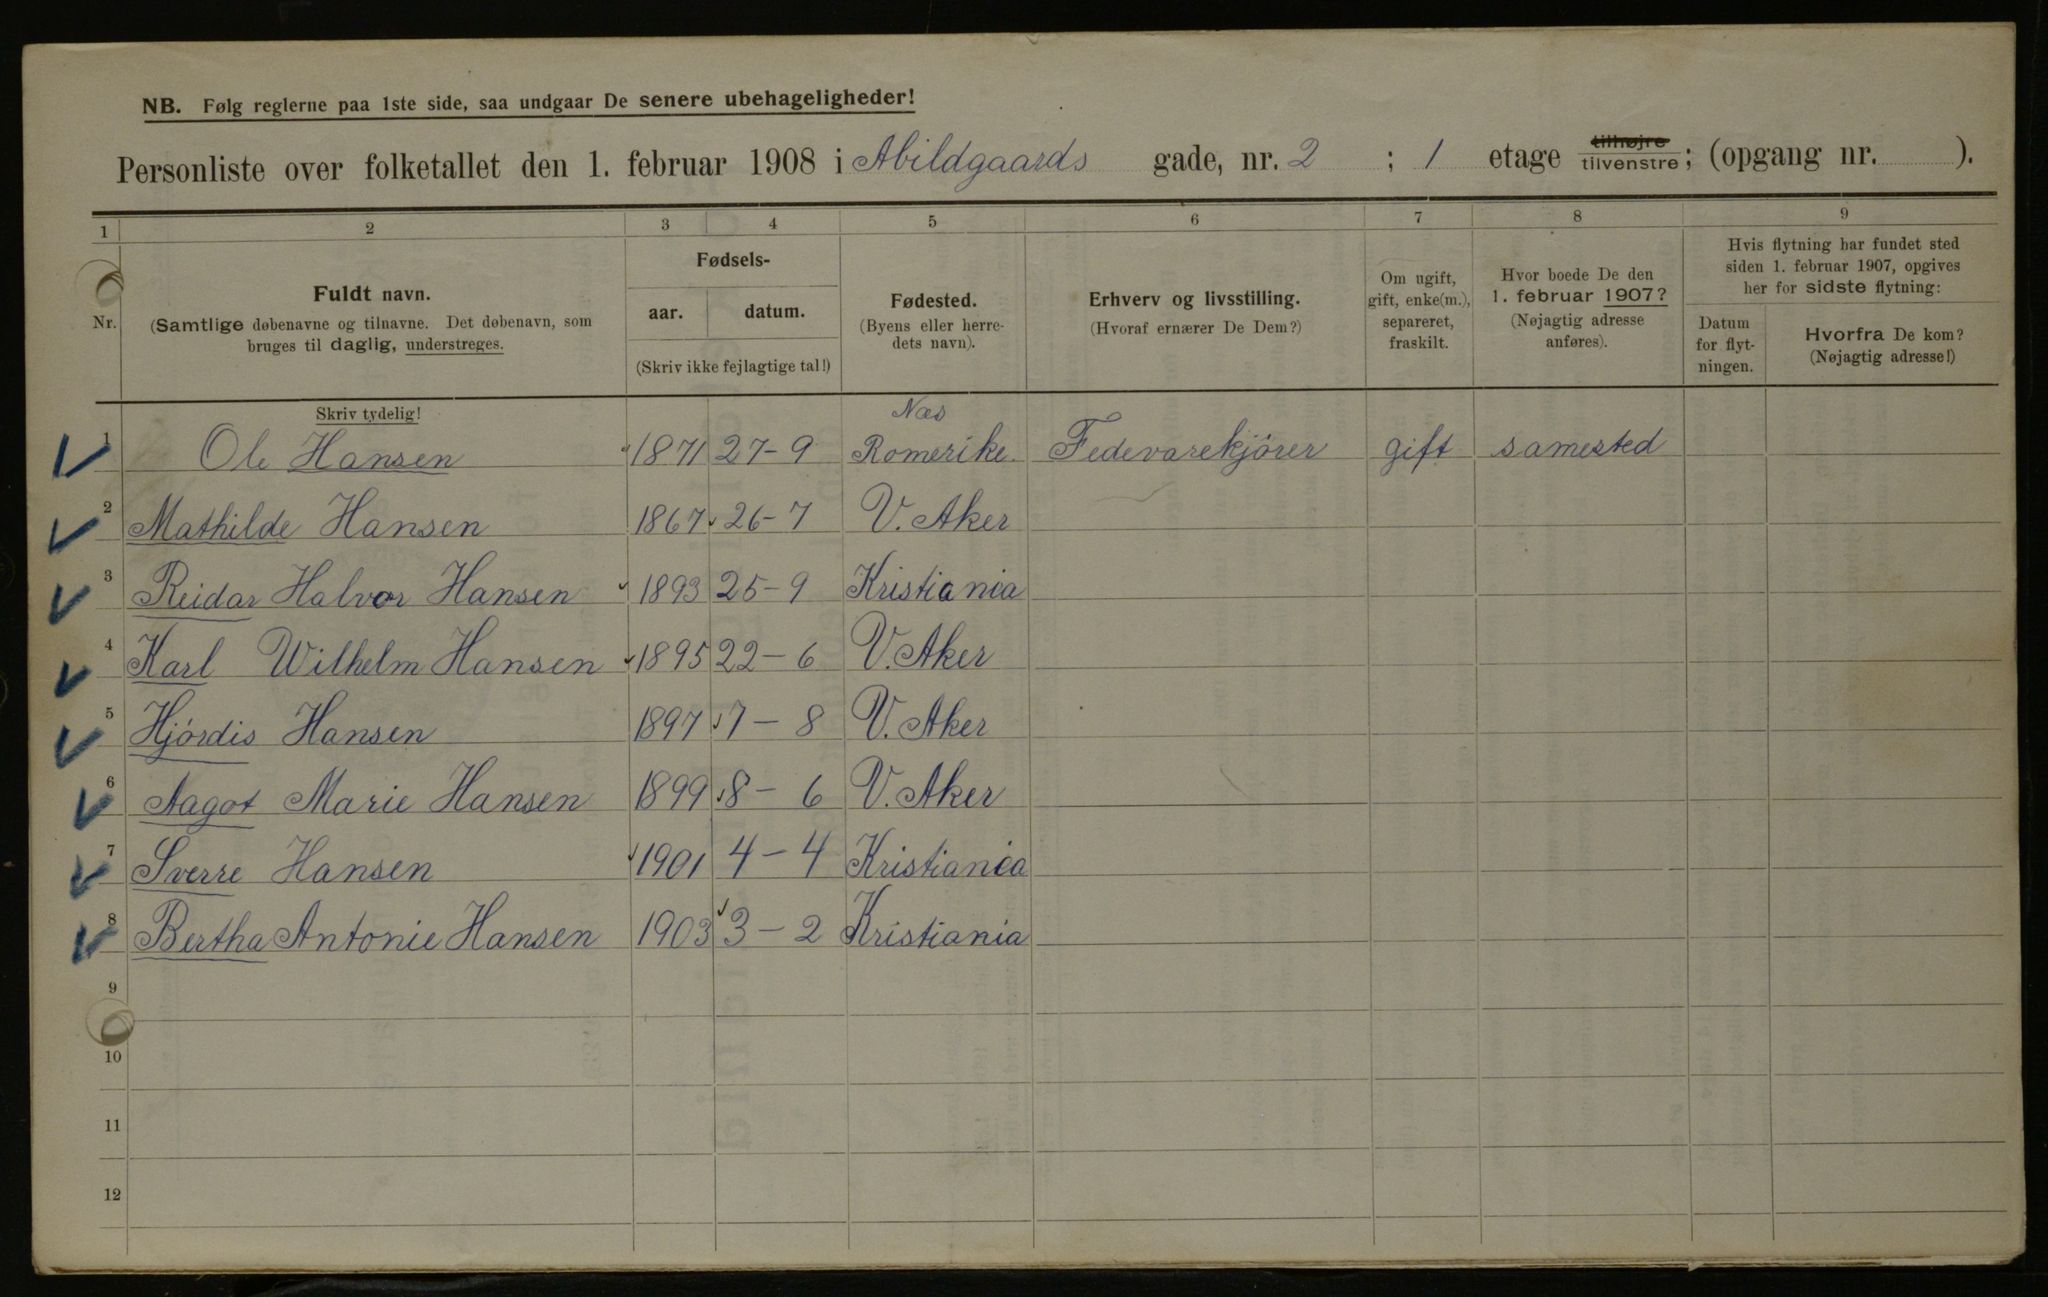 NB. Følg reglerne paa 1ste side, saa undgaar De senere ubehageligheder!
Personliste over folketallet den 1. februar 1908 i Abildgaards gade, nr. 2 ; 1 etage tilhøjre tilvenstre; (opgang nr. ).
1 2 3 4 5 6 7 8 9
Nr.
Fuldt navn.
(Samtlige døbenavne og tilnavne. Det døbenavn, som
bruges til daglig, understreges.
Fødsels-
aar. datum.
(Skriv ikke fejlagtige tal!)
Fødested.
(Byens eller herre-
dets navn).
Erhverv og livsstilling.
(Hvoraf ernærer De Dem?)
Om ugift,
gift, enke(m.),
separeret,
fraskilt.
Hvor boede De den
1. februar 1907?
(Nøjagtig adresse
anføres).
Hvis flytning har fundet sted
siden 1. februar 1907, opgives
her for sidste flytning:
Datum
for flyt-
ningen.
Hvorfra De kom?
(Nøjagtig adresse!)
Skriv tydelig!
Næs
1 Ole Hansen 1871 27-9 Romerike Fedevarekjörer gift samested
2 Mathilde Hansen 1867 26-7 V. Aker
3 Reidar Halvor Hansen 1893 25-9 Kristiania
4 Karl Wilhelm Hansen 1895 22-6 V. Aker
5 Hjördis Hansen 1897 7-8 V. Aker
6 Aagot Marie Hansen 1899 8-6 V. Aker
7 Sverre Hansen 1901 4-4 Kristiania
8 Bertha Antonie Hansen 1903 3-2 Kristiania
9
10
11
12